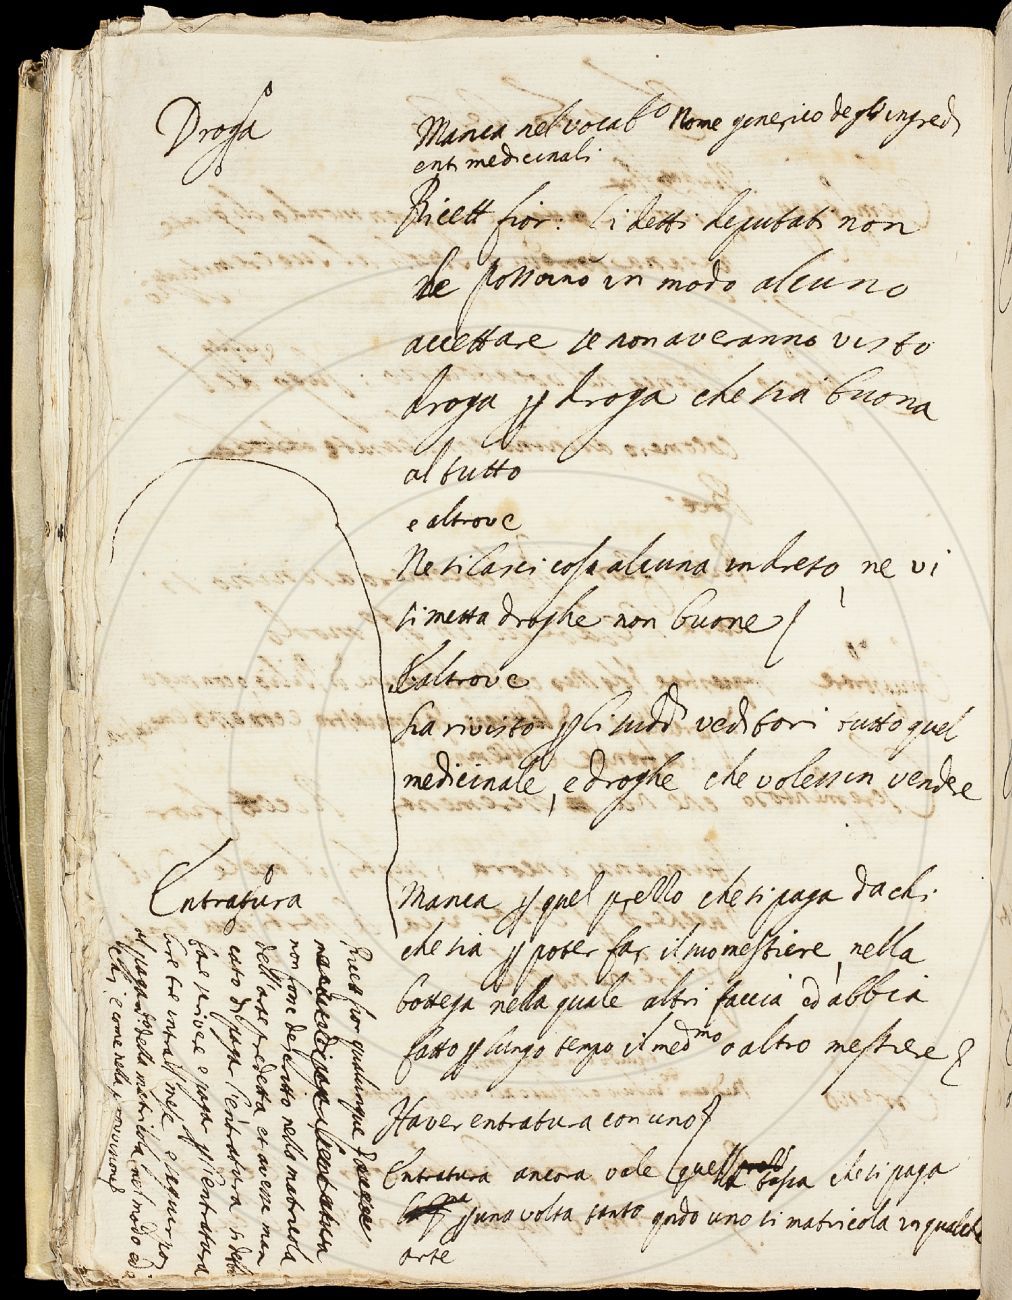 Droga
Manca nel vocab.o Nome generico degli ingredi
enti medicinali
Ricett fior: li detti deputati non
le possono in modo alcuno
accettare se non averanno visto
droga p droga che sia buona
al tutto
e altrove
Ne si lasci cosa alcuna indreto, ne vi
si metta droghe non buone
E altrove
sia rivisto p li sudd.i veditori tutto quel
medicinale, e droghe che volessin vendere
Entratura
Manca p quel prezzo che si paga da chi
che sia p poter far il suo mestiere, nella
bottega nella quale altri faccia ed abbia
fatto p lungo tempo il med.mo o altro mestiere
Haver entratura con uno
Entratura ancora vale quella tassa che si paga
p una volta tanto qndo uno si matricola in qualche
arte
Ricett fior qualunque
non fone descritto nella matricola
dell'arte predetta et avesse man
cato di pagar l'entratura si debba
far scrivere e pagar p l'entratura
lire tre infra mese e seguir poi
al pagam.to della matricola nel modo ed a
tempi e come nella provvisione